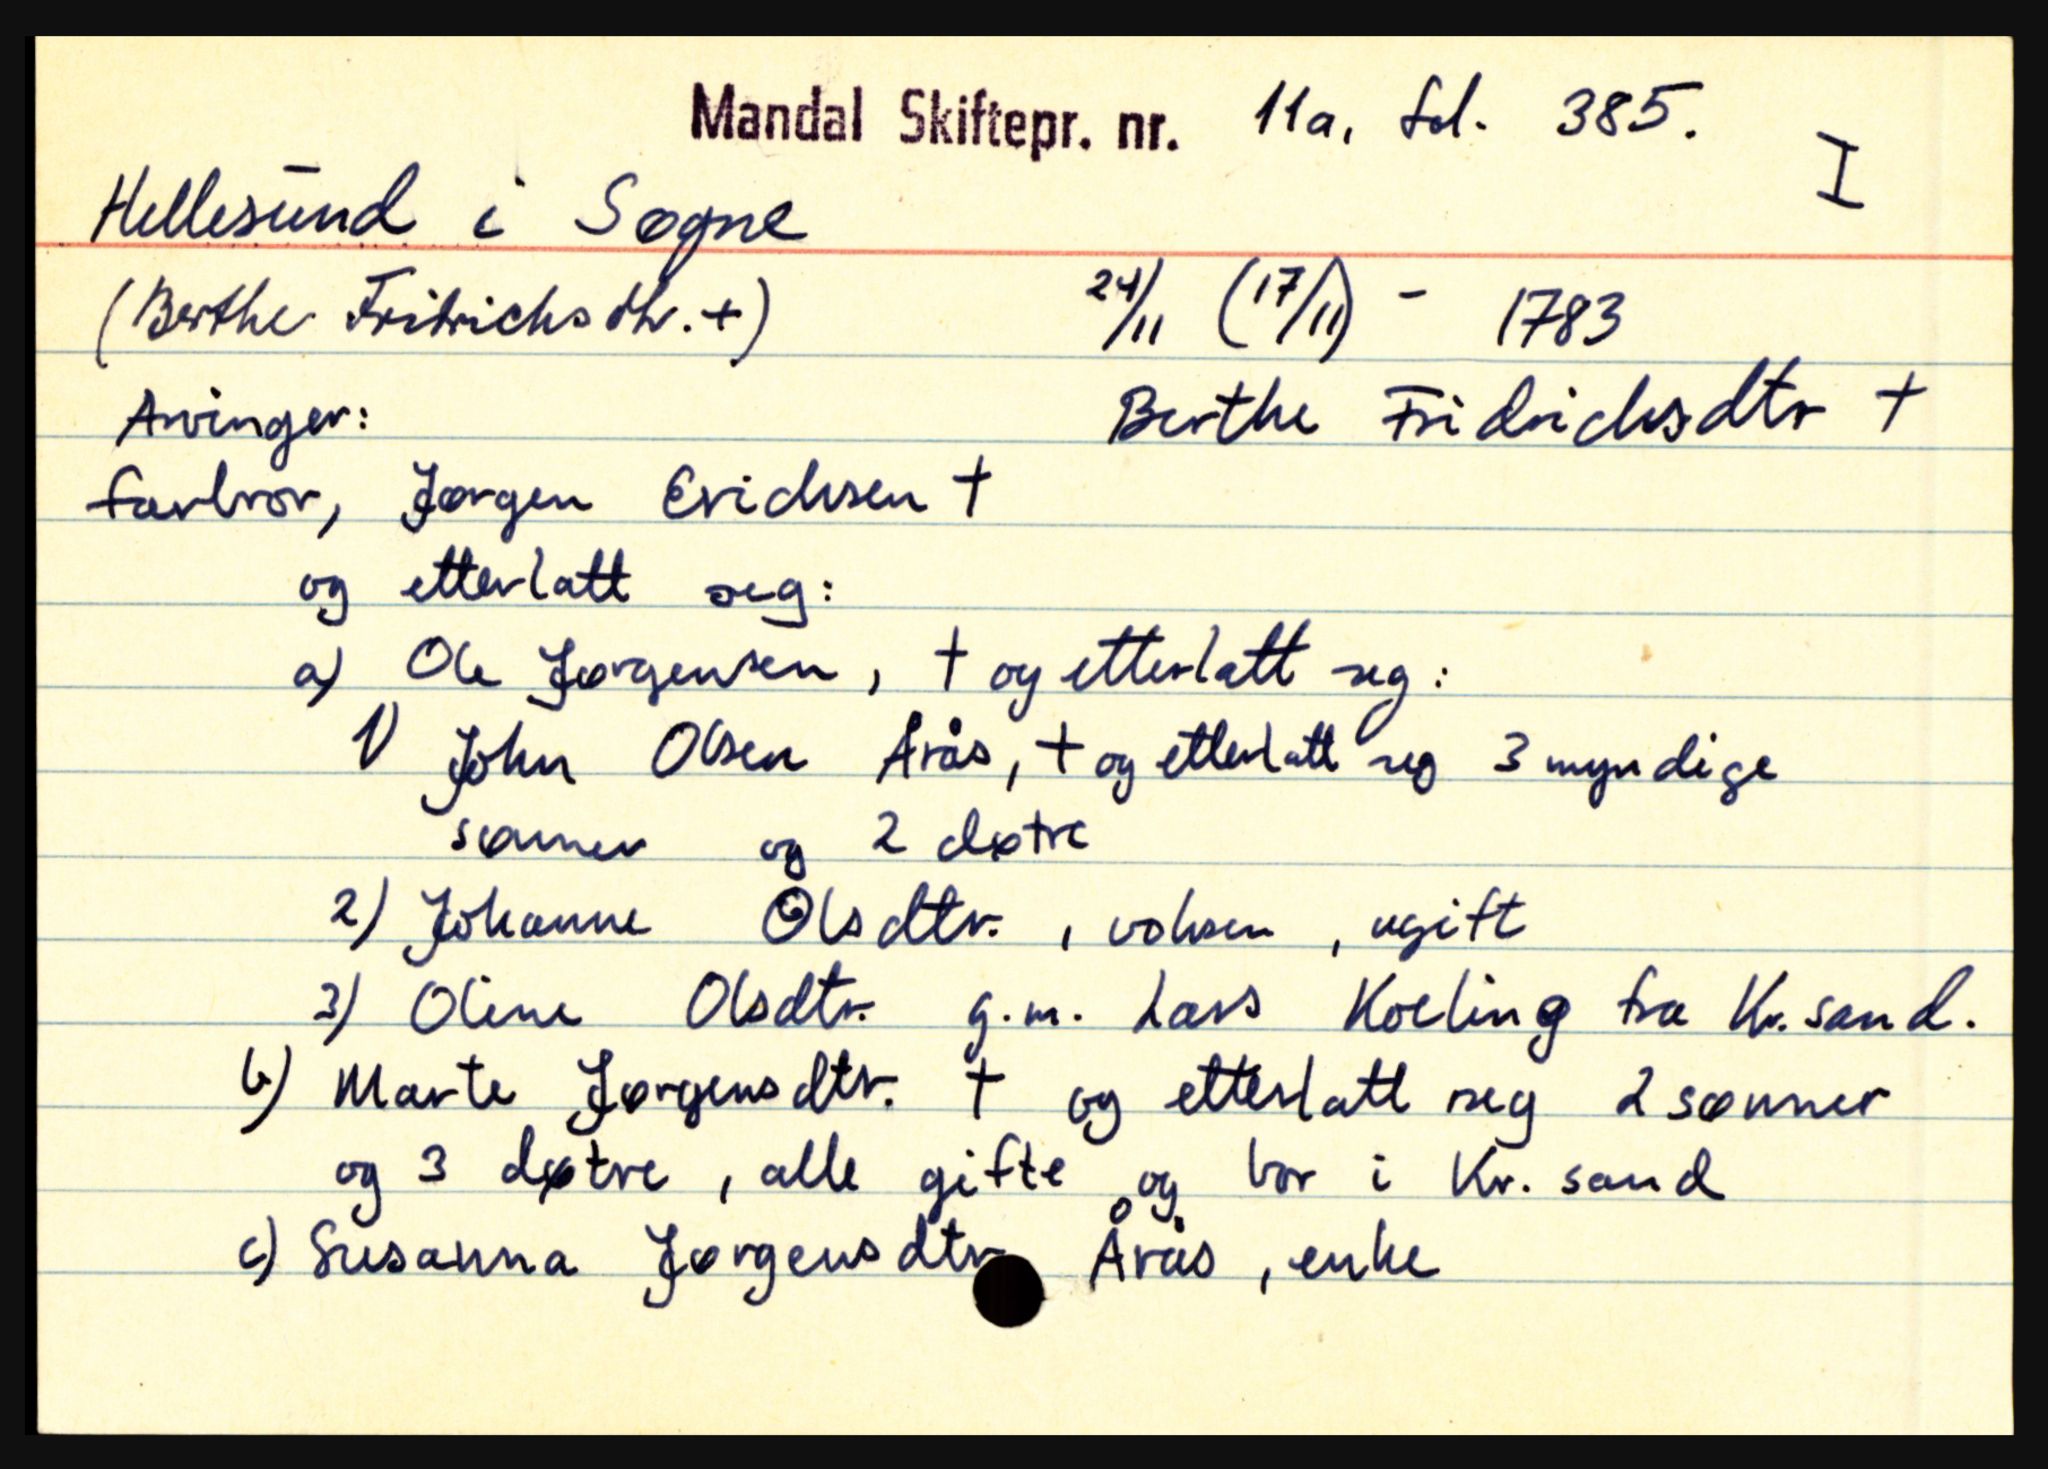 Mandal Skiftepr. nr. 11a, fol. 385.
I
Hellesund i Søgne
(Berthe Fridrichsdtr. +) 24/11 (17/11) - 1783
Arvinger: Berthe Fridrichsdtr +
farbror, Jørgen Erichsen +
og etterlatt seg:
a) Ole Jørgensen, + og etterlatt seg:
1) John Olsen Årås, + og etterlatt seg 3 myndige
sønner og 2 døtre
2) Johanne Olsdtr. , voksen , ugift
3) Oline Olsdtr. g.m. Lars Koeling fra Kr.sand.
b) Marte Jørgensdtr. + og etterlatt seg 2 sønner
og 3 døtre , alle gifte og bor i Kr. sand
c) Susanna Jørgensdtr Årås , enke